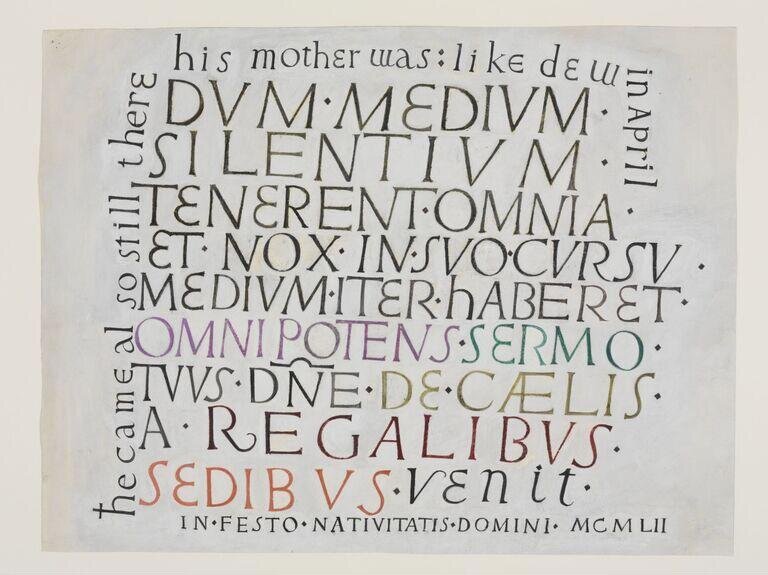 he came al so still there
his mother was: like dew
in April
DVM·MEDIVM·
SILENTIVM·
TENERENT·OMNIA·
ET·NOX·IN·SVO·CVRSV·
MEDIVM·ITER·hABERET·
OMNIPOTENS·SERMO·
TVVS·DÑE·DE·CÆLIS·
A·REGALIBVS·
SEDIBVS·VEnit·
IN·FESTO·NATIVITATIS·DOMINI·MCMLII